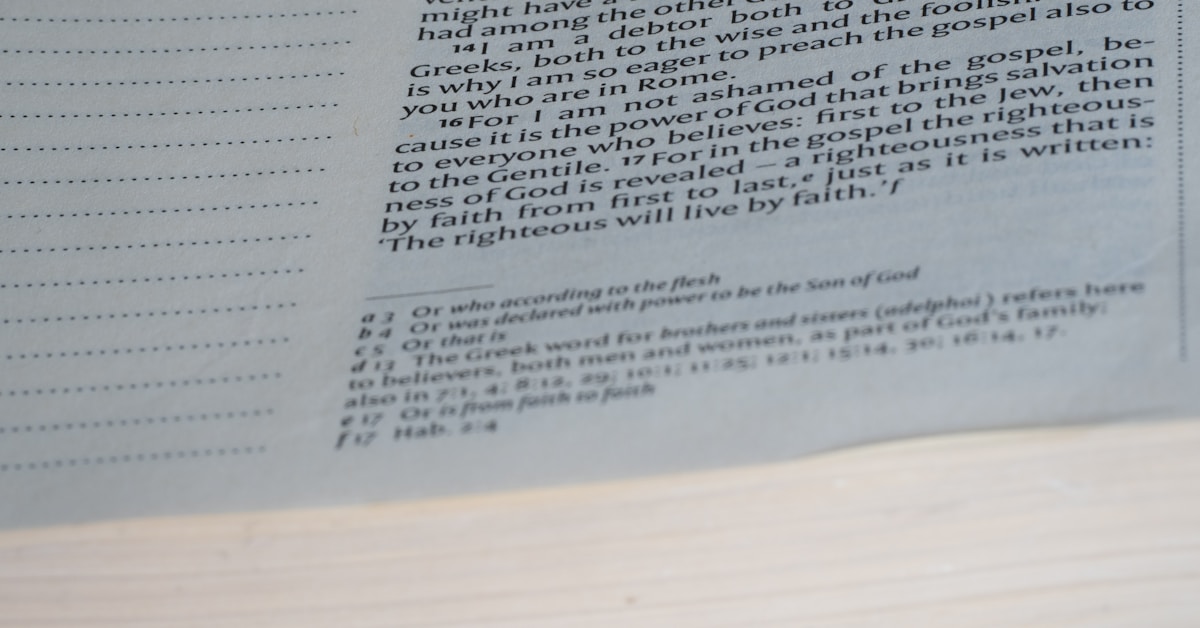 might have a
had among the other
14 I am a debtor both to
Greeks, both to the wise and the foolish
is why I am so eager to preach the gospel also to
you who are in Rome.
16 For I am not ashamed of the gospel, be-
cause it is the power of God that brings salvation
to everyone who believes: first to the Jew, then
to the Gentile. 17 For in the gospel the righteous-
ness of God is revealed – a righteousness that is
by faith from first to last,e just as it is written:
‘The righteous will live by faith.’f
a 3 Or who according to the flesh
b 4 Or was declared with power to be the Son of God
c 5 Or that is
d 13 The Greek word for brothers and sisters (adelphoi) refers here
to believers, both men and women, as part of God's family;
also in 7:1, 4; 8:12, 29; 10:1; 11:25; 12:1; 15:14, 30; 16:14, 17.
e 17 Or is from faith to faith
f 17 Hab. 2:4